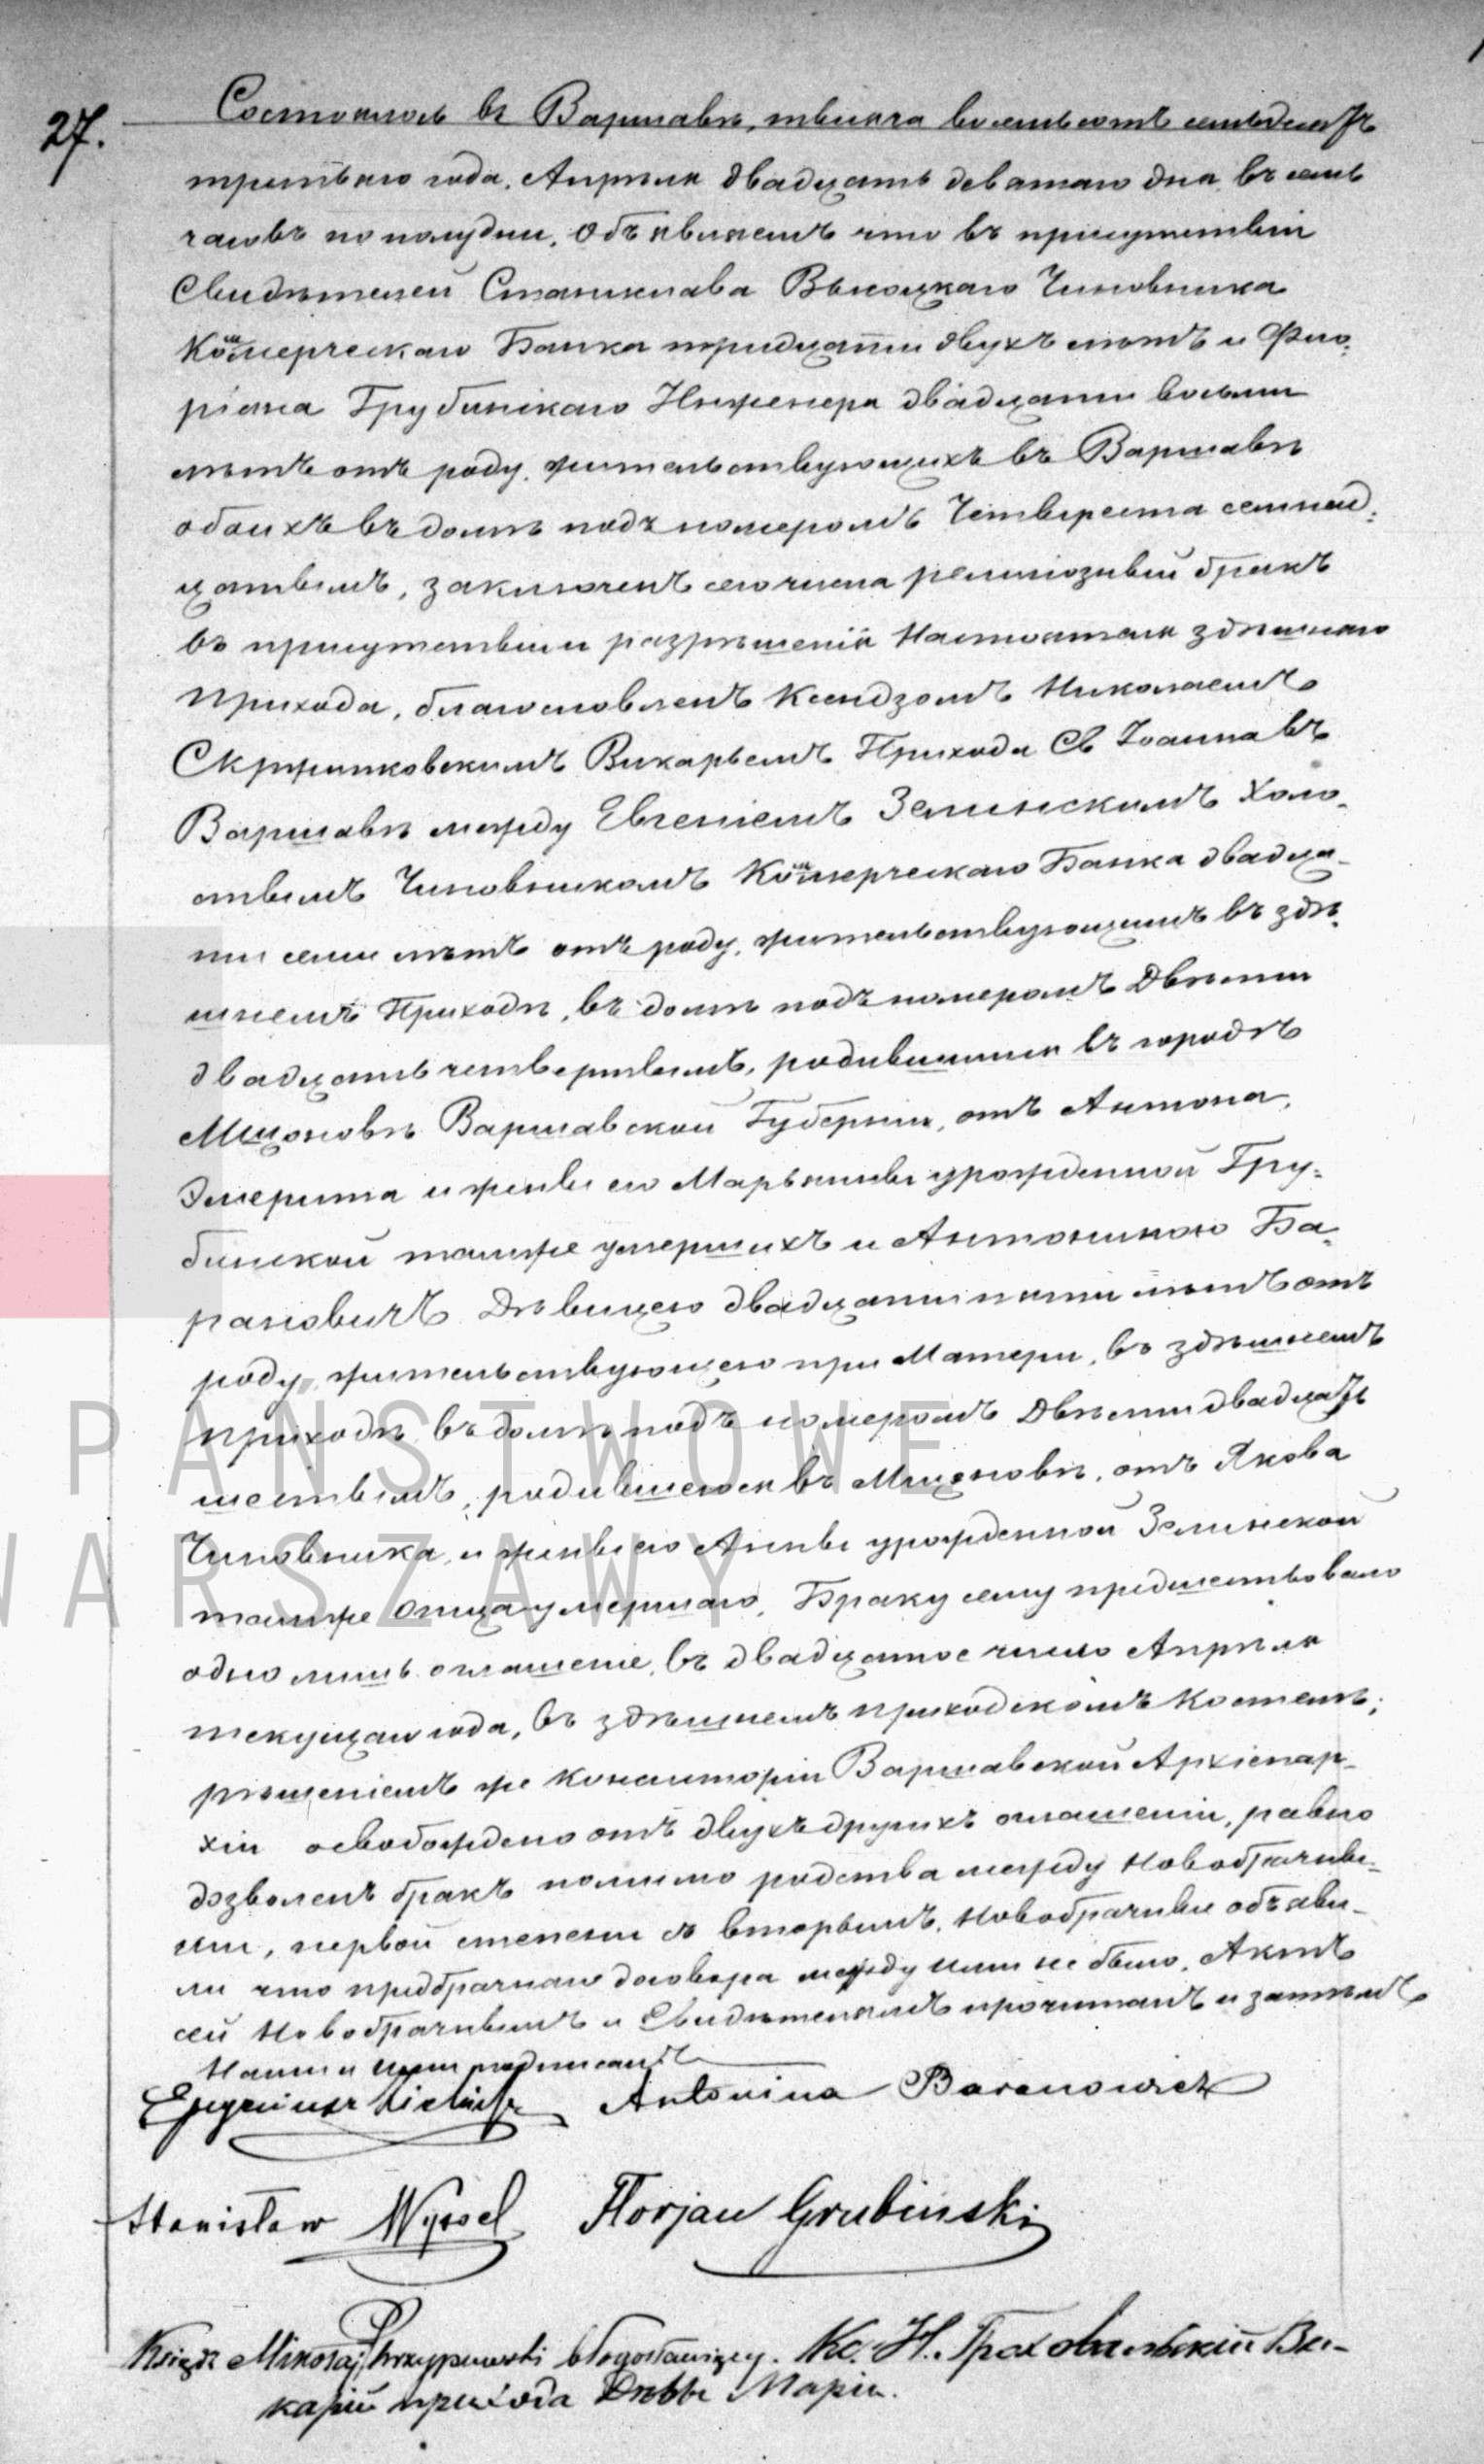 27.
Состоялось въ Варшавѣ, тысяча восемьсотъ семьдесятъ
третьяго года, Апрѣля двадцать девятаго дня въ семь
часовъ по полудни, Объявляемъ что въ присутствіи
Свидѣтелей Станислава Чиновника
Коммерческаго Банка тридцати двухъ лѣтъ и Фло:
ріана Грубинскаго Инженера двадцати восьми
лѣтъ отъ роду, жительствующихъ въ Варшавѣ
обоихъ въ домѣ подъ номеромъ Четвереста семнад:
цатымъ, заключенъ сего числа религіозный бракъ
въ присутствіи и разрѣшенія Настоятеля здѣшняго
прихода, благословленъ Ксендзомъ Николаемъ
Скржипковскимъ Викарьемъ Прихода Св Іоанна въ
Варшавѣ между Евгеніемъ Зелинскимъ Холо-
стымъ Чиновникомъ Коммерческаго Банка двадца-
ти семи лѣтъ отъ роду, жительствующимъ въ здѣ:
шнемъ Приходѣ, въ домѣ подъ номеромъ Двѣсти
двадцать четвертымъ, родившимся въ городѣ
Мщоновѣ Варшавской Губерніи, отъ Антона,
Эмерита и жены его Марьянны урожденной Гру:
бинской тамже умершихъ и Антониною Ба-
рановичъ Дѣвицею двадцати пяти лѣтъ отъ
роду, жительствующею при Матери, въ здѣшнемъ
приходѣ въ домѣ подъ номеромъ Двѣсти двадцать
шестымъ, родившеюся въ Мщоновѣ, отъ Якова
Чиновника, и жены его Анны урожденной Зелинской
тамже Отца умершаго, Браку сему предшествовало
одно лишь оглашеніе, въ двадцатое число Апрѣля
текущаго года, въ здѣшнемъ приходскомъ Костелѣ;
рѣшеніемъ же Консисторіи Варшавской Архіепар-
хіи освобождено отъ двухъ другихъ оглашеніи, равно
дозволенъ бракъ помимо родства между Новобрачны-
ми, первой степени съ вторымъ. Новобрачные объяви-
ли что предбрачнаго договора между ними не было. Актъ
сей Новобрачнымъ и Свидѣтелямъ прочитанъ и затѣмъ
Нами и ими подписанъ
Eugeniusz Zieliński Antonina Baranowicz
Stanisław Florjan Grubinski
Ksiądz Mikołaj błogosławiący. Кс. Н. Ви-
карій прихода Дѣвы Маріи.